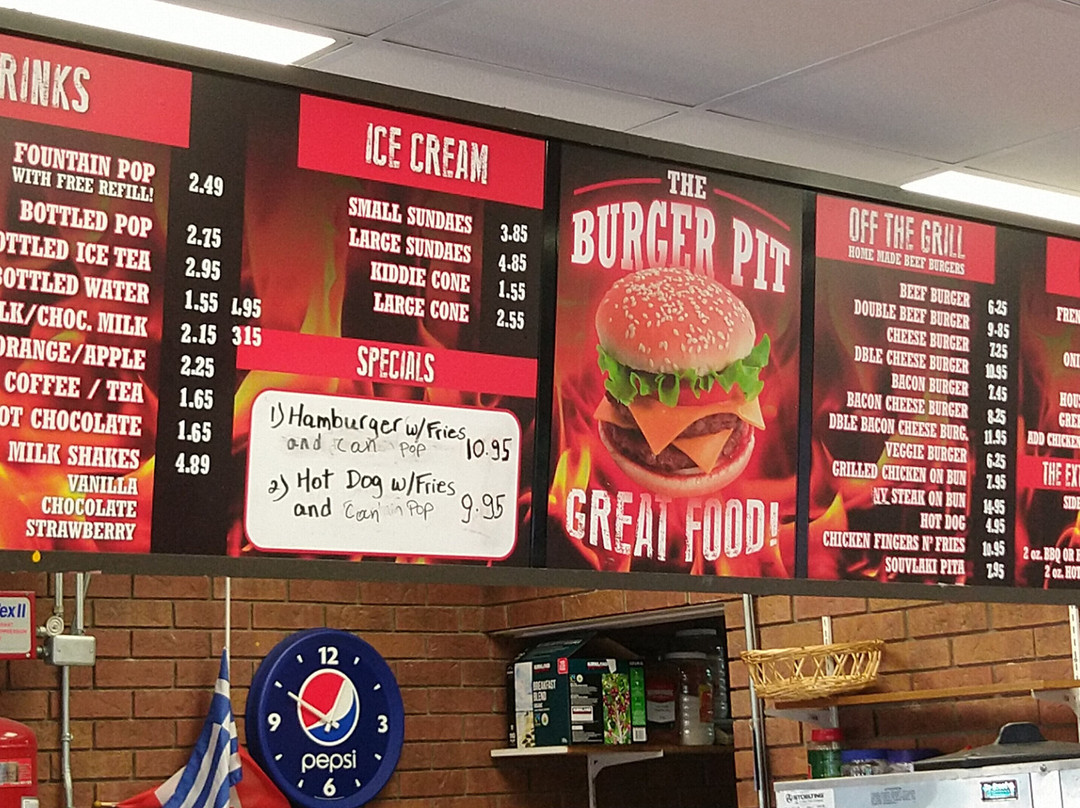 RINKS
FOUNTAIN POP 2.49
WITH FREE REFILL!
BOTTLED POP 2.75
OTTLED ICE TEA 2.95
BOTTLED WATER 1.55 1.95
LK/CHOC. MILK 2.15 315
ORANGE/APPLE 2.25
COFFEE / TEA 1.65
OT CHOCOLATE 1.65
MILK SHAKES 4.89
VANILLA
CHOCOLATE
STRAWBERRY
ICE CREAM
SMALL SUNDAES 3.85
LARGE SUNDAES 4.85
KIDDIE CONE 1.55
LARGE CONE 2.55
SPECIALS
1) Hamburger w/Fries
and Can Pop 10.95
2) Hot Dog w/Fries
and Can Pop 9.95
THE
BURGER PIT
GREAT FOOD!
OFF THE GRILL
HOME MADE BEEF BURGERS
BEEF BURGER 6.25
DOUBLE BEEF BURGER 9.85
CHEESE BURGER 7.25
DBLE CHEESE BURGER 10.95
BACON BURGER 7.45
BACON CHEESE BURGER 8.25
DBLE BACON CHEESE BURG. 11.95
VEGGIE BURGER 6.25
GRILLED CHICKEN ON BUN 7.95
NY STEAK ON BUN 14.95
HOT DOG 4.95
CHICKEN FINGERS N' FRIES 10.95
SOUVLAKI PITA 7.95
FREN
ONI
HOU
GREE
ADD CHICKEN
THE EXT
SIDE
2 oz. BBQ OR H
2 oz. HOT
exII
12
3
6
9
pepsi
KIRKLAND
KIRKLAND
BREAKFAST
BLEND
STOELTING